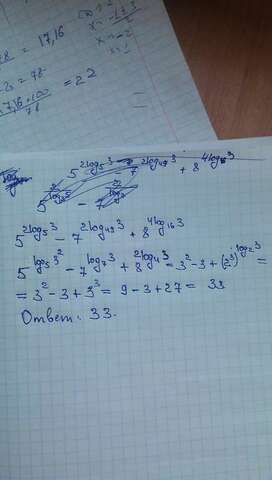 = 17,16
= 22
5^{2log_5 3} - 7^{2log_{49} 3} + 8^{4log_{16} 3}
5^{2log_5 3} - 7^{2log_{49} 3} + 8^{4log_{16} 3}
5^{log_5 3^2} - 7^{log_7 3} + 8^{2log_4 3} = 3^2 - 3 + (2^3)^{log_2 3} =
= 3^2 - 3 + 3^3 = 9 - 3 + 27 = 33
Ответ: 33.